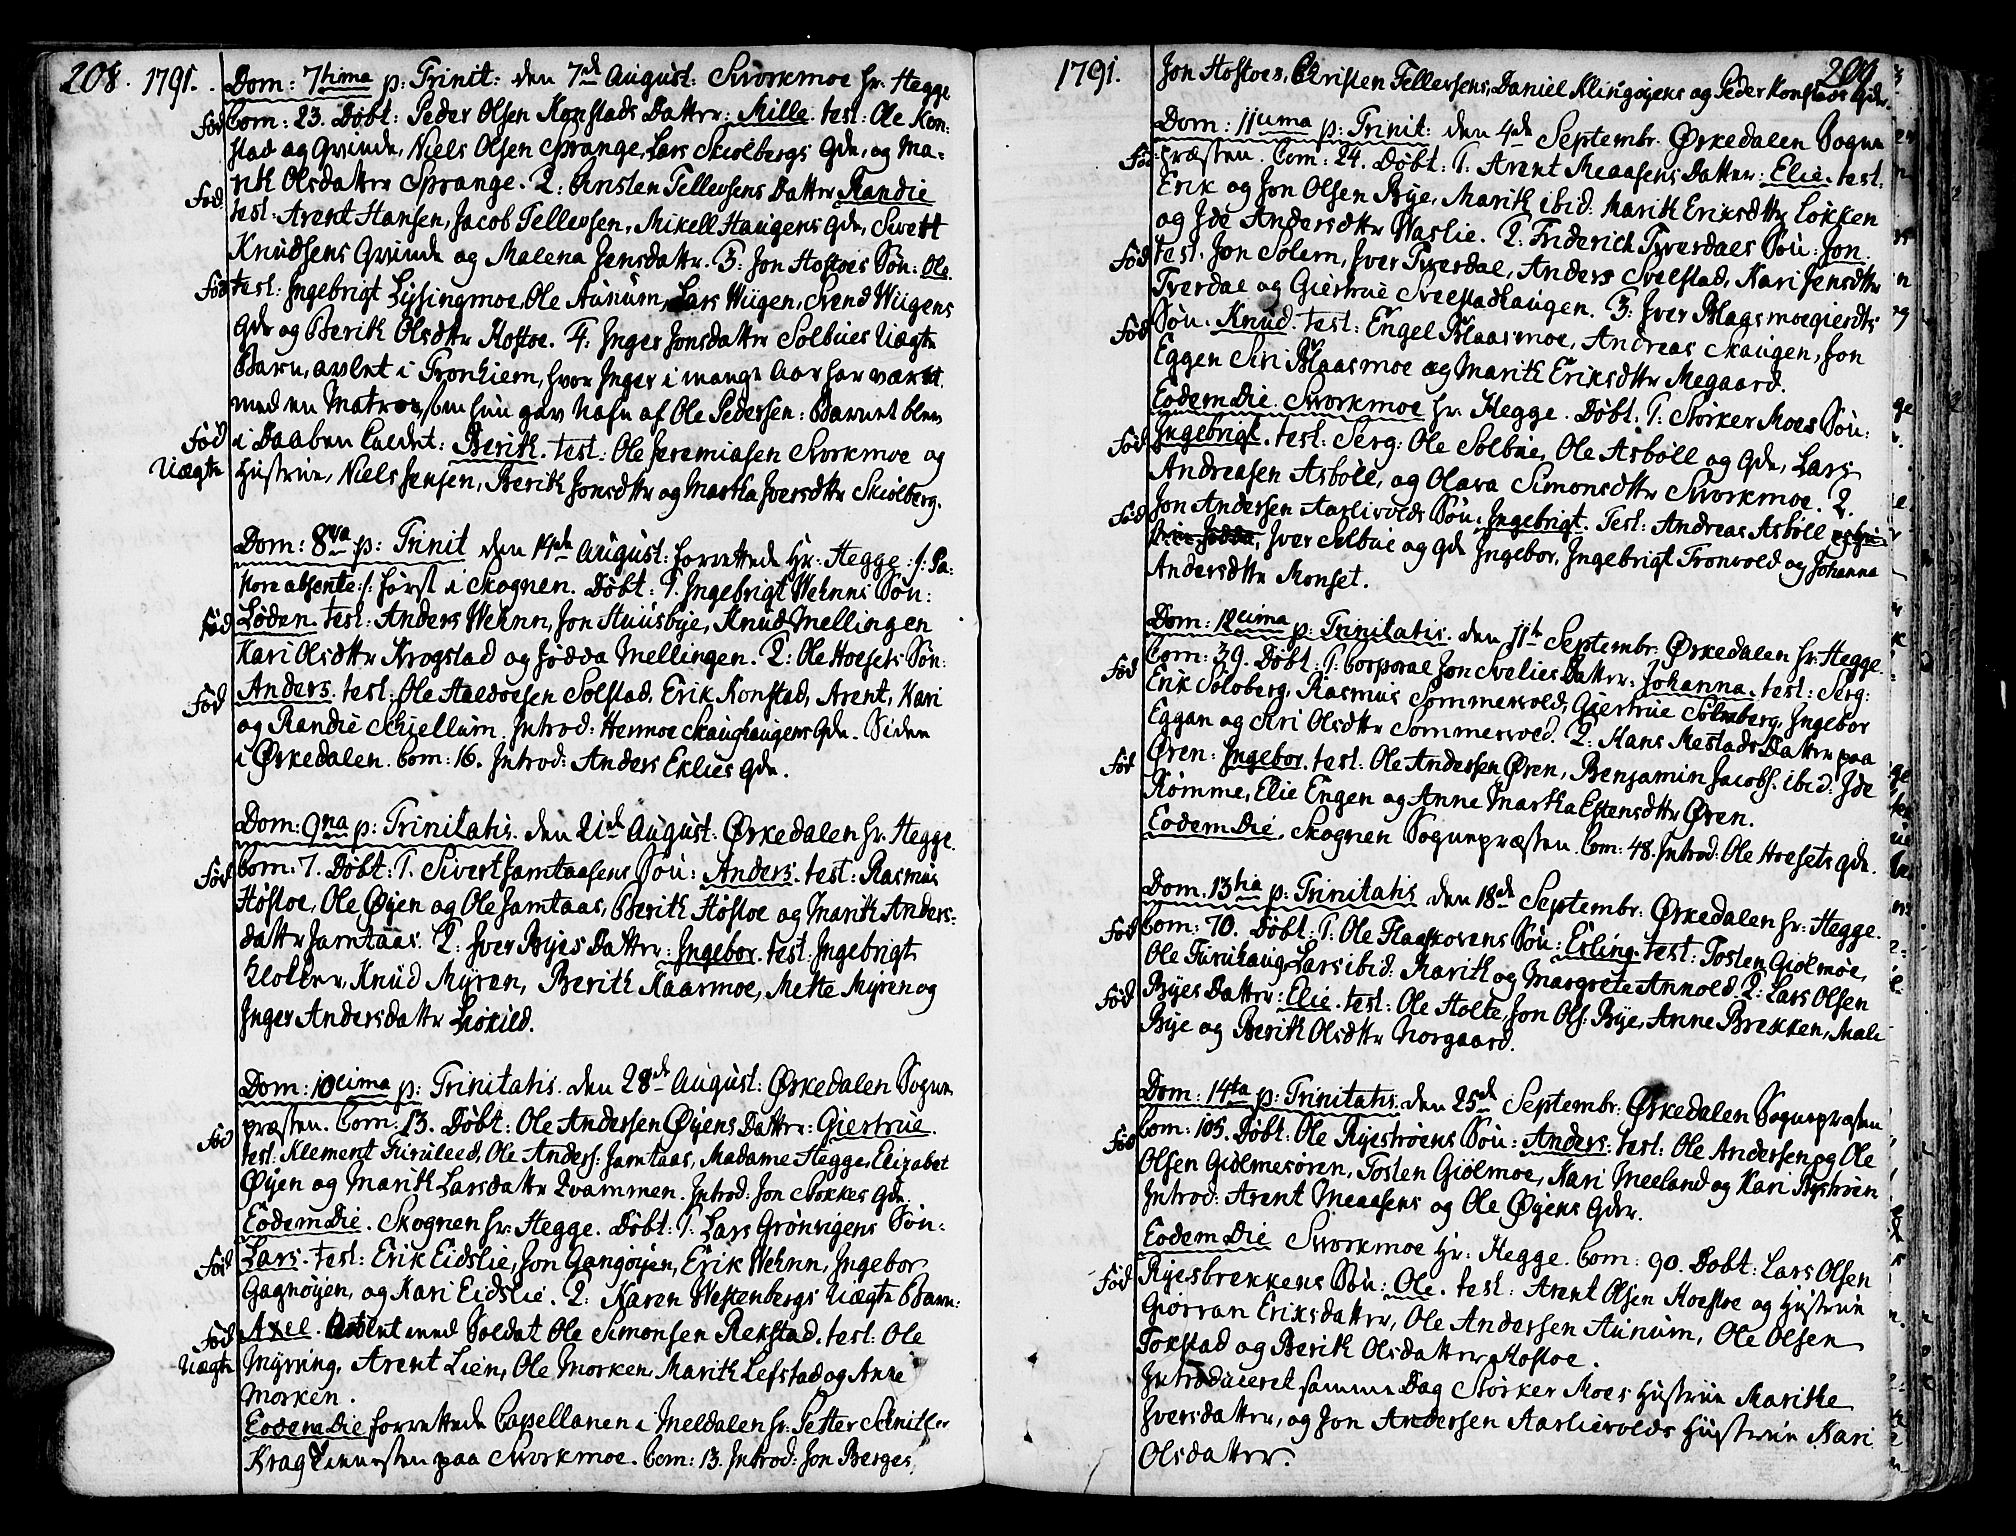 208. 1791.
Dom: 7tima p: Trinit: den 7de August: Svorkmoe Hr: Hegge
Fød Com: 23. Døbt: Peder Olsen Konstads Datter: Mille. test: Ole Kon:
stad og Qvinde, Niels Olsen Sprange, Lars Skiolbergs Qde, og Ma-
rith Olsdatter Sprange. 2: Cristen Tellevsens Datter Randie
Fød test: Arent Hansen, Jacob Tellevsen, Mikell Haugens Qde, Sivert
Knudsens Qvinde og Malena Jensdattr. 3: Jon Hostoes Søn: Ole.
Fød test: Ingebrigt Lysingmoe, Ole Aunum, Lars Wiigen, Svend Wiigens
Qde og Berith Olsdttr Hostoe. 4: Inger Jonsdatter Solbues Uægte
Barn, avlet i Tronhiem, hvor Inger i mange Aar har været
med en Matros, som hun gav Nafn af Ole Pedersen: Barnet blev
Fød i Daaben kaldet: Berith. test: Ole Jeremiasen Svorkmoe og
Uægte Hustrue, Niels Jensen, Berith Jonsdttr og Martha Iversdttr Skiolberg.
Dom: 8va p: Trinit den 14de August: forrettede Hr: Hegge :/: Pa:
store absente :/: først i Skognen. Døbt: 1. Ingebrigt Wehnns Søn:
Fød Løden. test: Anders Wehnn, Jon Huusbye, Knud Mellingen
Kari Olsdttr Krogstad og Jødda Mellingen. 2: Ole Hoesets Søn:
Fød Anders. test: Ole Haldvesen Solstad, Erik Konstad, Arent, Kari
og Randie Schiellum. Introd: Hermoe Skaughaugens Qde. Siden
i Ørkedalen. Com: 16. Introd: Anders Eklies Qde.
Dom: 9na p: Trinitatis. den 21de August: Ørkedalen Hr: Hegge.
Fød Com: 7. Døbt: 1. Sivert Jamtaasens Søn: Anders. test: Rasmus
Hostoe, Ole Øyen og Ole Jamtaas, Berith Høstoe og Marith Anders-
dattr Jamtaas. 2: Iver Byes Datter: Ingebor. test: Ingebrigt
Klokker, Knud Myren, Berith Kaarmoe, Mette Myren og
Inger Andersdattr Liøkild.
Dom: 10cima p: Trinitatis. den 28de August: Ørkedalen Sogne
præsten. Com: 13. Døbt: Ole Andersen Øyens Datter: Giertrue.
Fød test: Klement Furuleed, Ole Anders: Jamtaas, Madame Hegge, Elizabet
Øyen og Marith Larsdattr Kvammen. Introd: Jon Stokkes Qde.
Eodem Die. Skognen Hr: Hegge. Døbt: 1. Lars Grønvigens Søn:
Fød Lars. test: Erik Eidslie, Jon Gangøyen, Erik Wehnn, Ingebor
Gagnøyen, og Kari Eidslie. 2: Karen Westenbergs Uægte Barn:
Fød Axel. avlet med Soldat Ole Simonsen Rekstad. test: Ole
Uægte Myrring, Arent Lien, Ole Morken, Marith Lefstad og Anne
Morken.
Eodem Die forrettede Capellanen i Meldalen Hr: Petter Schnitler
Krag Tienesten paa Svorkmoe. Com: 13. Introd: Jon Berges,
1791. 209
Jon Hostoes, Christen Tellevsens, Daniel Klingøyens og Peder Konstads Qder.
Dom: 11cima p: Trinit: den 4de Septembr: Ørkedalen Sogne
Fød præsten. Com: 24. Døbt: 1. Arent Meaasens Datter: Elie. test:
Erik og Jon Olsen Bye, Marith ibid: Marith Eriksdttr Løkken
og Ide Andersdttr Waslie. 2: Friderich Tverdaes Søn: Jon.
Fød test: Jon Solem, Iver Tverdae, Anders Svelstad, Kari Jensdttr
Tverdae og Giertrue Svelstadhaugen. 3: Iver Blagsmoegierdts
Fød Søn: Knud. test: Engel Blaasmoe, Andreas Skaugen, Jon
Eggen Siri Blaasmoe og Marith Eriksdttr Megaard.
Eodem Die. Svorkmoe Hr: Hegge. Døbt: 1. Størker Moes Søn:
Fød Ingebrigt. test: Serg: Ole Solbue, Ole Asbøll og Qde, Lars
Andreasen Asbøll, og Olava Simonsdttr Svorkmoe. 2.
Fød Jon Andersen Aarlivolds Søn: Ingebrigt. Test: Andreas Asbøll
Iver Solbue og Qde Ingebor, Ingebrigt Tronvold og Johanna
Andersdttr Monset.
Dom: 12cima p: Trinitatis. den 11te Septembr: Ørkedalen Hr: Hegge.
Fød Com: 39. Døbt: 1. Corporal Jon Svelies Datter: Johanna. test: Serg:
Erik Soloberg, Rasmus Sommervold, Giertrue Solberg, Ingebor
Eggan og Siri Olsdttr Sommervold. 2: Hans Mestads Datter paa
Fød Øren: Ingebor. test: Ole Andersen Øren, Benjamin Jacobs: ibid: Ide
Rømme, Elie Engen og Anne Martha Estensdttr Øren.
Eodem Die, Skognen Sognepræsten. Com: 48. Introd: Ole Hoesets Qde.
Dom: 13tia p: Trinitatis den 18de Septembr: Ørkedalen Hr: Hegge.
Fød Com: 70. Døbt: 1. Ole Flaaskovens Søn: Erling. test: Tosten Giølmoe,
Ole Furuhaug, Lars ibid: Marith og Margrete Annold. 2: Lars Olsen
Fød Byes Datter: Elie. test: Ole Holte, Jon Ols: Bye, Anne Brekken, Mali
Bye og Berith Olsdttr Norgaard.
Dom: 14ta p: Trinitatis den 25de Septembr: Ørkedalen Sognepræsten
Fød Com: 105. Døbt: Ole Ryestrøens Søn: Anders. test: Ole Andersen og Ole
Olsen Giølmesøren, Tosten Giølmoe, Kari Meeland og Kari Ryestrøen
Introd: Arent Meaasens og Ole Øyens Qder.
Eodem Die Svorkmoe Hr: Hegge. Com: 90. Døbt: Lars Olsen
Fød Ryesbrekkens Søn: Ole. test: Arent Olsen Hoestoe og Hustrue
Giørran Eriksdatter, Ole Andersen Aunum, Ole Olsen
Tokstad og Berith Olsdatter Hostoe.
Introduceret samme Dag Størker Moes Hustrue Marithe
Iversdatter, og Jon Andersen Aarlievolds Hustrue Kari
Olsdatter.